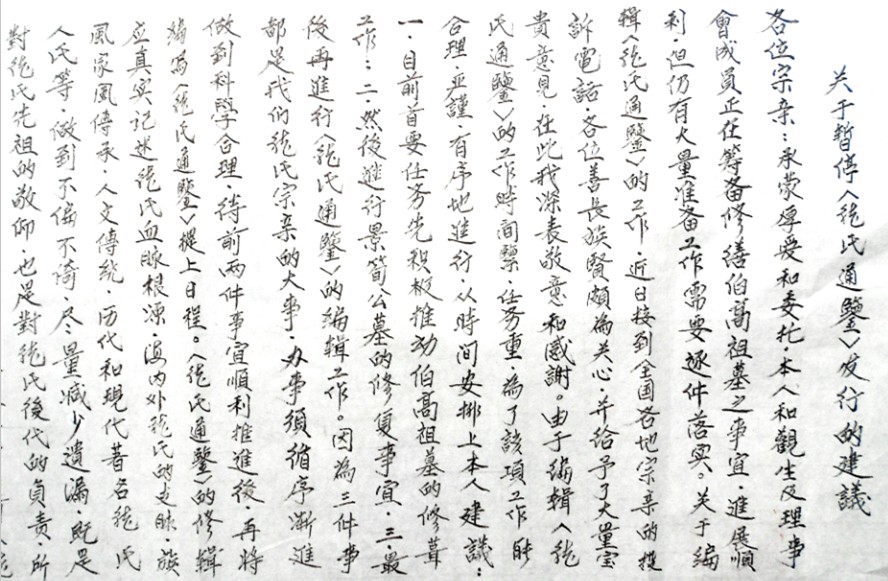 关于暫停〈氏通鑒〉发行的建議
各位宗亲：承蒙厚爱和委托，本人和觀生及理事
會成員正在筹备修缮伯高祖墓之事宜，進展順
利，但仍有大量准备工作需要逐件落实。关于編
輯〈氏通鑒〉的工作，近日接到全国各地宗亲的投
訴電話，各位善長族賢頗為关心，并給予了大量宝
貴意見，在此我深表敬意和感謝。由于編輯〈
氏通鑒〉的工作時間緊，任务重，為了該項工作能
合理，严謹，有序地進行，从時間安排上本人建議：
一、目前首要任务先积极推动伯高祖墓的修葺
工作；二、然後進行景筍公墓的修复事宜，三、最
後再進行〈氏通鑒〉的编輯工作。因為三件事
都是我们氏宗亲的大事，办事須循序漸進
做到科學合理，待前两件事宜順利推進後，再將
编写〈氏通鑒〉提上日程。〈氏通鑒〉的修輯
应真实记述氏血脉根源，海内外氏的支脉，族
風家風傳承，人文傳统，历代和現代著名氏
人氏等，做到不偏不倚，尽量减少遺漏，既是
對氏先祖的敬仰，也是對氏後代的负责，所